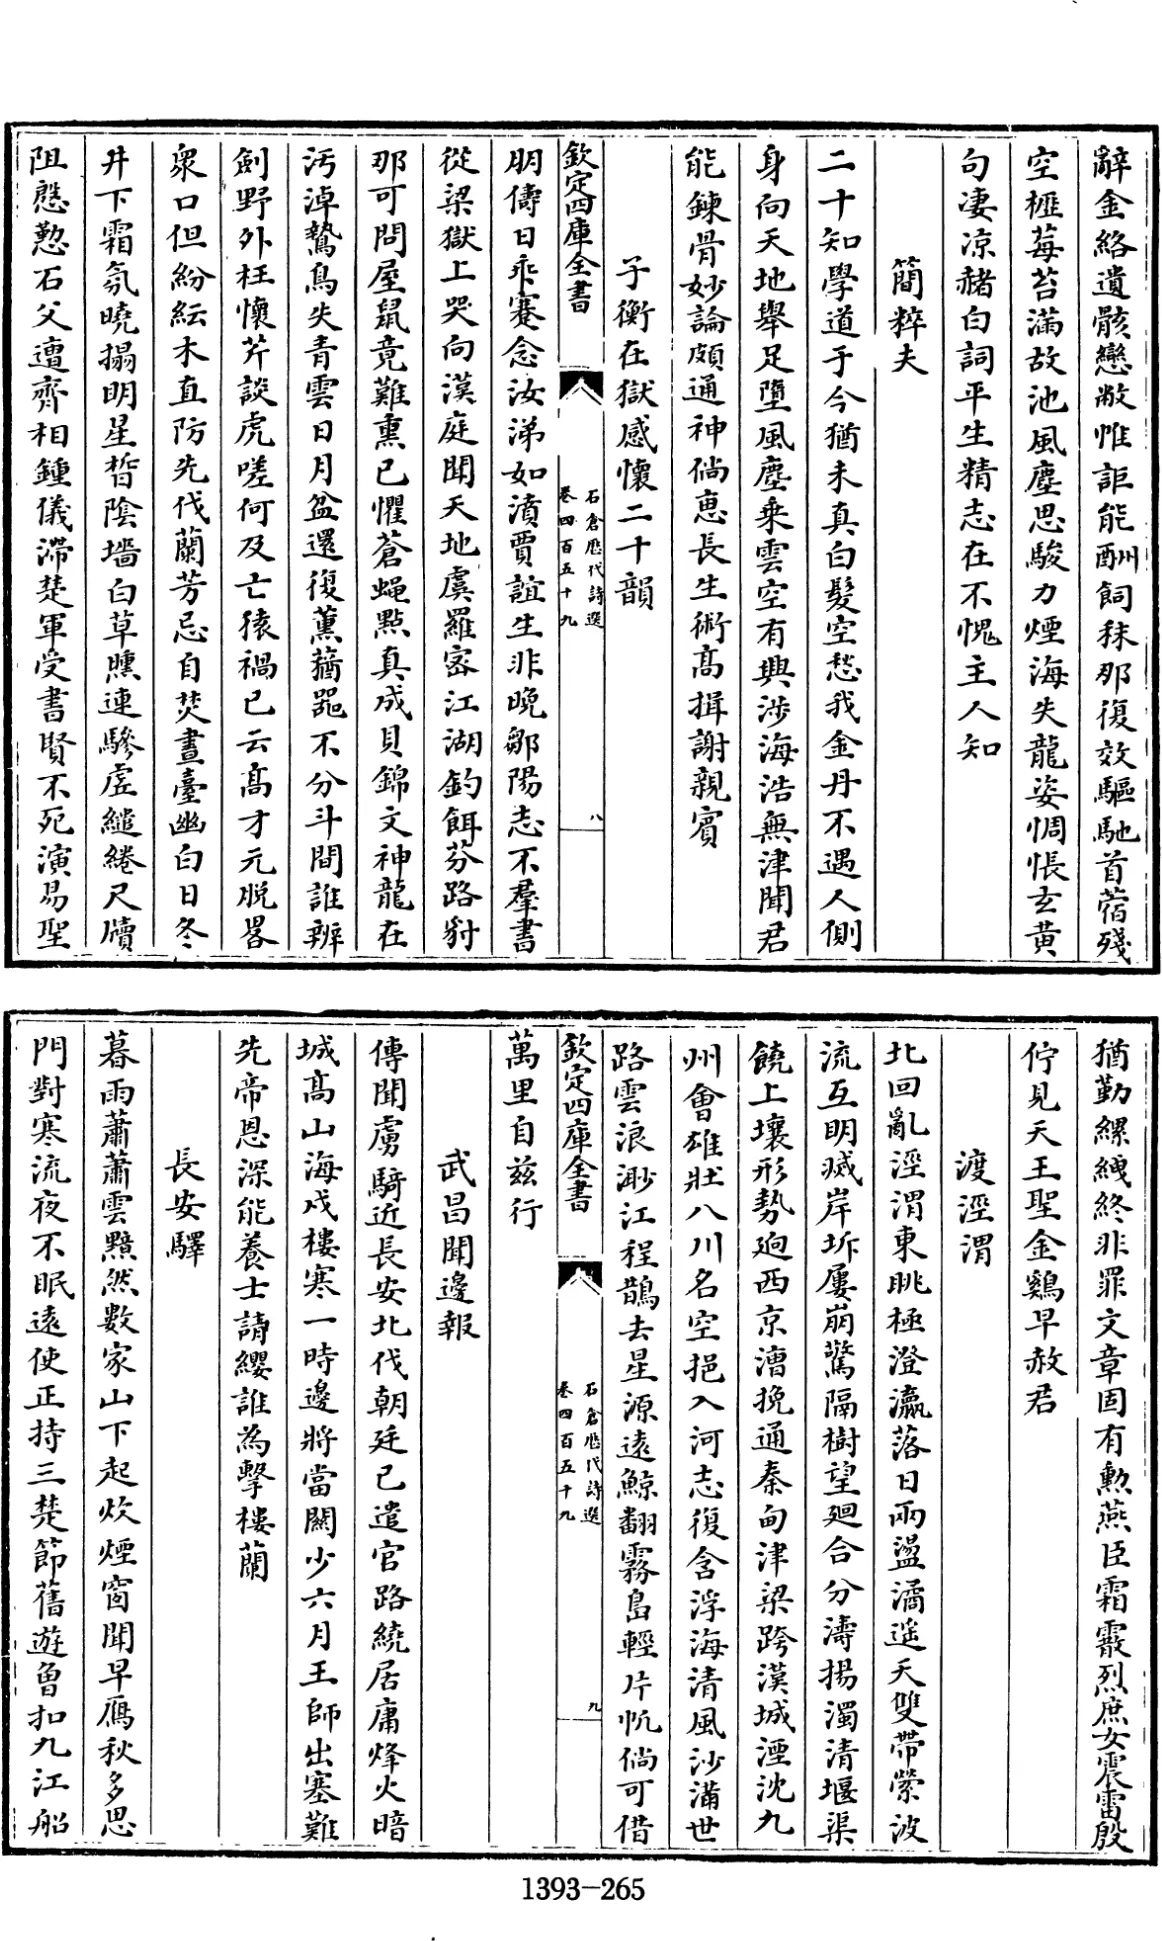 辭金絡遺骸戀敝帷詎能酬飼秣那復效驅馳首蓿殘
空櫪莓苔滿故池風塵思駿力煙海失龍姿惆悵玄黄
句凄凉赭白詞平生精志在不愧主人知
簡粹夫
二十知學道于今猶未真白髮空愁我金丹不遇人側
身向天地舉足墮風塵乗雲空有興涉海浩無津聞君
能鍊骨妙論頗通神倘惠長生術髙揖謝親賓
子衡在獄感懷二十韻
欽定四庫全書
石倉歴代詩選
卷四百五十九
八
朋儔日乖蹇念汝涕如濆賈誼生非晚鄒陽志不羣書
從梁獄上哭向漢庭聞天地虞羅宻江湖釣餌芬路豺
那可問屋鼠竟難熏已懼蒼蠅點真成貝錦文神龍在
汚淖鷙鳥失青雲日月盆還復薰蕕器不分斗間誰辨
劍野外枉懷芹談虎嗟何及亡猿禍已云髙才元脱畧
衆口但紛紜木直防先伐蘭芳忌自焚晝臺幽白日冬
井下霜氛曉搨明星晳陰墻白草曛連驂虚繾綣尺牘
阻慇懃石父遭齊相鍾儀滯楚軍受書賢不死演易聖
猶勤縲絏終非罪文章固有勲燕臣霜霰烈庶女震雷殷
佇見天王聖金鷄早赦君
渡涇渭
北回亂涇渭東眺極澄瀛落日兩盪潏遥天雙帶縈波
流互明滅岸圻屢崩驚隔樹望廻合分濤揚濁清堰渠
饒上壤形勢廻西京漕挽通秦甸津梁跨漢城湮沈九
州會雄壯八川名空挹入河志復含浮海清風沙滿世
路雲浪渺江程鵲去星源逺鯨翻霧島輕片帆倘可借
欽定四庫全書
石倉歴代詩選
卷四百五十九
九
萬里自兹行
武昌聞邊報
傳聞虜騎近長安北伐朝廷已遣官路繞居庸烽火暗
城髙山海戍樓寒一時邊將當關少六月王師出塞難
先帝恩深能養士請纓誰為擊樓蘭
長安驛
暮雨蕭蕭雲黯然數家山下起炊煙窗聞早鴈秋多思
門對寒流夜不眠逺使正持三楚節舊遊曽扣九江船
1393-265